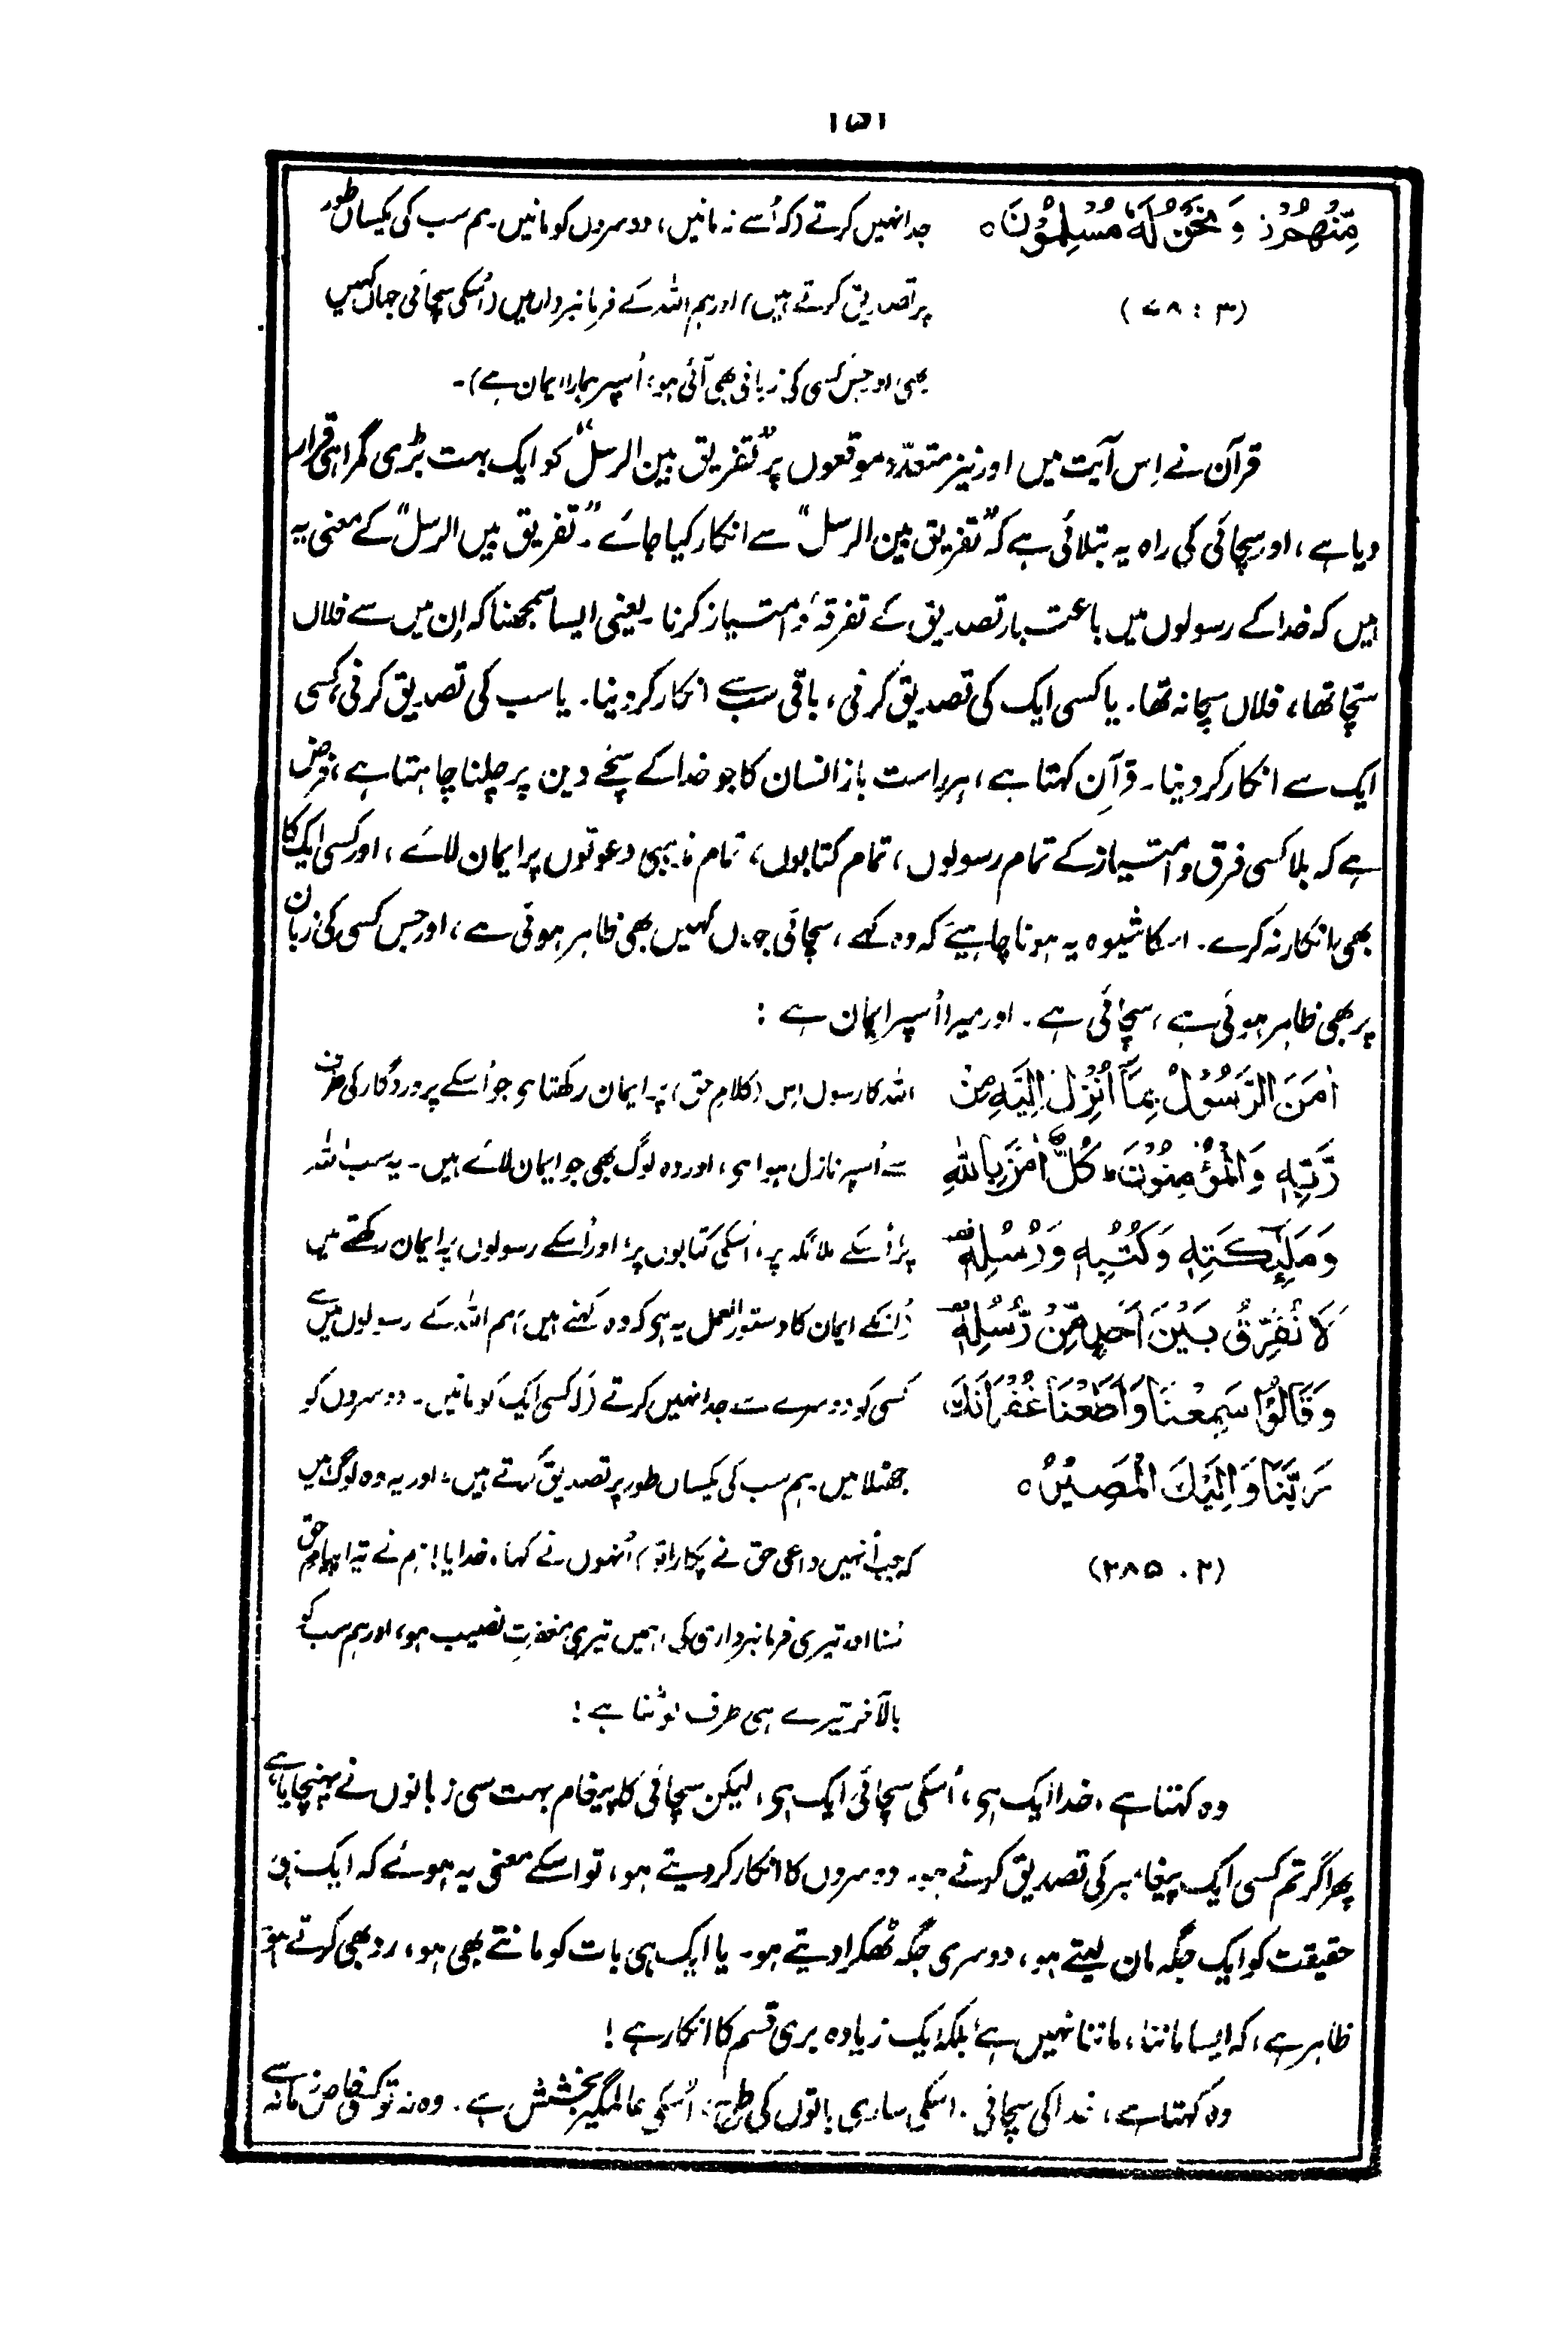 ۱۵۱
مِّنْهُمْ ۡ وَ نَحْنُ لَهٗ مُسْلِمُوْنَ ○ جدا نہیں کرتے (کہ اُسے نہ مانیں، دوسروں کو مانیں۔ ہم سب کی یکساں طور
(۳ : ۷۸) پر تصدیق کرتے ہیں) اور ہم اللہ کے فرمانبردار ہیں (اُسکی سچائی جہاں کہیں
بھی اور جس کسی کی زبانی بھی آئی ہو، اُسپر ہمارا ایمان ہے)۔
قرآن نے اِس آیت میں اور نیز متعدّد موقعوں پر "تفریق بین الرسل" کو ایک بہت بڑی گمراہی قرار
دیا ہے، اور سچائی کی راہ یہ بتلائی ہے کہ "تفریق بین الرسل" سے انکار کیا جائے۔ "تفریق بین الرسل" کے معنی یہ
ہیں کہ خدا کے رسولوں میں باعتبار تصدیق کے تفرقہ و امتیاز کرنا۔ یعنی ایسا سمجھنا کہ اِن میں سے فلاں
سچّا تھا، فلاں سچا نہ تھا۔ یا کسی ایک کی تصدیق کرنی، باقی سب سے انکار کر دینا۔ یا سب کی تصدیق کرنی، کسی
ایک سے انکار کر دینا۔ قرآن کہتا ہے، ہر راست باز انسان کا جو خدا کے سچے دین پر چلنا چاہتا ہے، فرض
ہے کہ بلا کسی فرق و امتیاز کے تمام رسولوں، تمام کتابوں، تمام مذہبی دعوتوں پر ایمان لائے، اور کسی ایک کا
بھی انکار نہ کرے۔ اسکا شیوہ یہ ہونا چاہیے کہ وہ کہے، سچائی جہاں کہیں بھی ظاہر ہوئی ہے، اور جس کسی کی زبان
پر بھی ظاہر ہوئی ہے، سچائی ہے۔ اور میرا اُسپر ایمان ہے :
اٰمَنَ الرَّسُوْلُ بِمَآ اُنْزِلَ اِلَيْهِ مِنْ اللہ کا رسول اِس (کلامِ حق) پر ایمان رکھتا ہی جو اُسکے پروردگار کی طرف
رَّبِّهٖ وَالْمُؤْمِنُوْنَ ؕ كُلٌّ اٰمَنَ بِاللّٰهِ سے اُسپر نازل ہوا ہی، اور وہ لوگ بھی جو ایمان لائے ہیں۔ یہ سب اللہ
وَمَلٰٓئِكَتِهٖ وَكُتُبِهٖ وَرُسُلِهٖ پر، اُسکے ملائکہ پر، اُسکی کتابوں پر، اور اُسکے رسولوں پر ایمان رکھتے ہیں
لَا نُفَرِّقُ بَيْنَ اَحَدٍ مِّنْ رُّسُلِهٖ (اِنکے ایمان کا دستور العمل یہ ہی کہ وہ کہتے ہیں) ہم اللہ کے رسولوں میں سے
وَقَالُوْا سَمِعْنَا وَاَطَعْنَا غُفْرَانَكَ کسی کو دوسرے سے جدا نہیں کرتے (کہ کسی ایک کو مانیں۔ دوسروں کو
رَبَّنَا وَاِلَيْكَ الْمَصِيْرُ ○ جھٹلائیں۔ ہم سب کی یکساں طور پر تصدیق کرتے ہیں) اور یہ وہ لوگ ہیں
(۲ . ۲۸۵) کہ جب اُنہیں داعی حق نے پکارا تو اُنہوں نے کہا، خدایا! ہم نے تیرا پیامِ حق
سُنا اور تیری فرمانبرداری کی، ہمیں تیری مغفرت نصیب ہو، اور ہم سب کو
بالآخر تیرے ہی طرف لوٹنا ہے!
وہ کہتا ہے، خدا ایک ہی، اُسکی سچائی ایک ہی، لیکن سچائی کا پیغام بہت سی زبانوں نے پہنچایا ہے،
پھر اگر تم کسی ایک پیغامبر کی تصدیق کرتے ہو، دوسروں کا انکار کر دیتے ہو، تو اسکے معنی یہ ہوئے کہ ایک ہی
حقیقت کو ایک جگہ مان لیتے ہو، دوسری جگہ ٹھکرا دیتے ہو۔ یا ایک ہی بات کو مانتے بھی ہو، رد بھی کرتے ہو۔
ظاہر ہے، کہ ایسا ماننا، ماننا نہیں ہے، بلکہ ایک زیادہ بری قسم کا انکار ہے!
وہ کہتا ہے، خدا کی سچائی، اسکی ساری باتوں کی طرح، اُسکی عالمگیر بخشش ہے۔ وہ نہ تو کسی خاص زمانہ سے